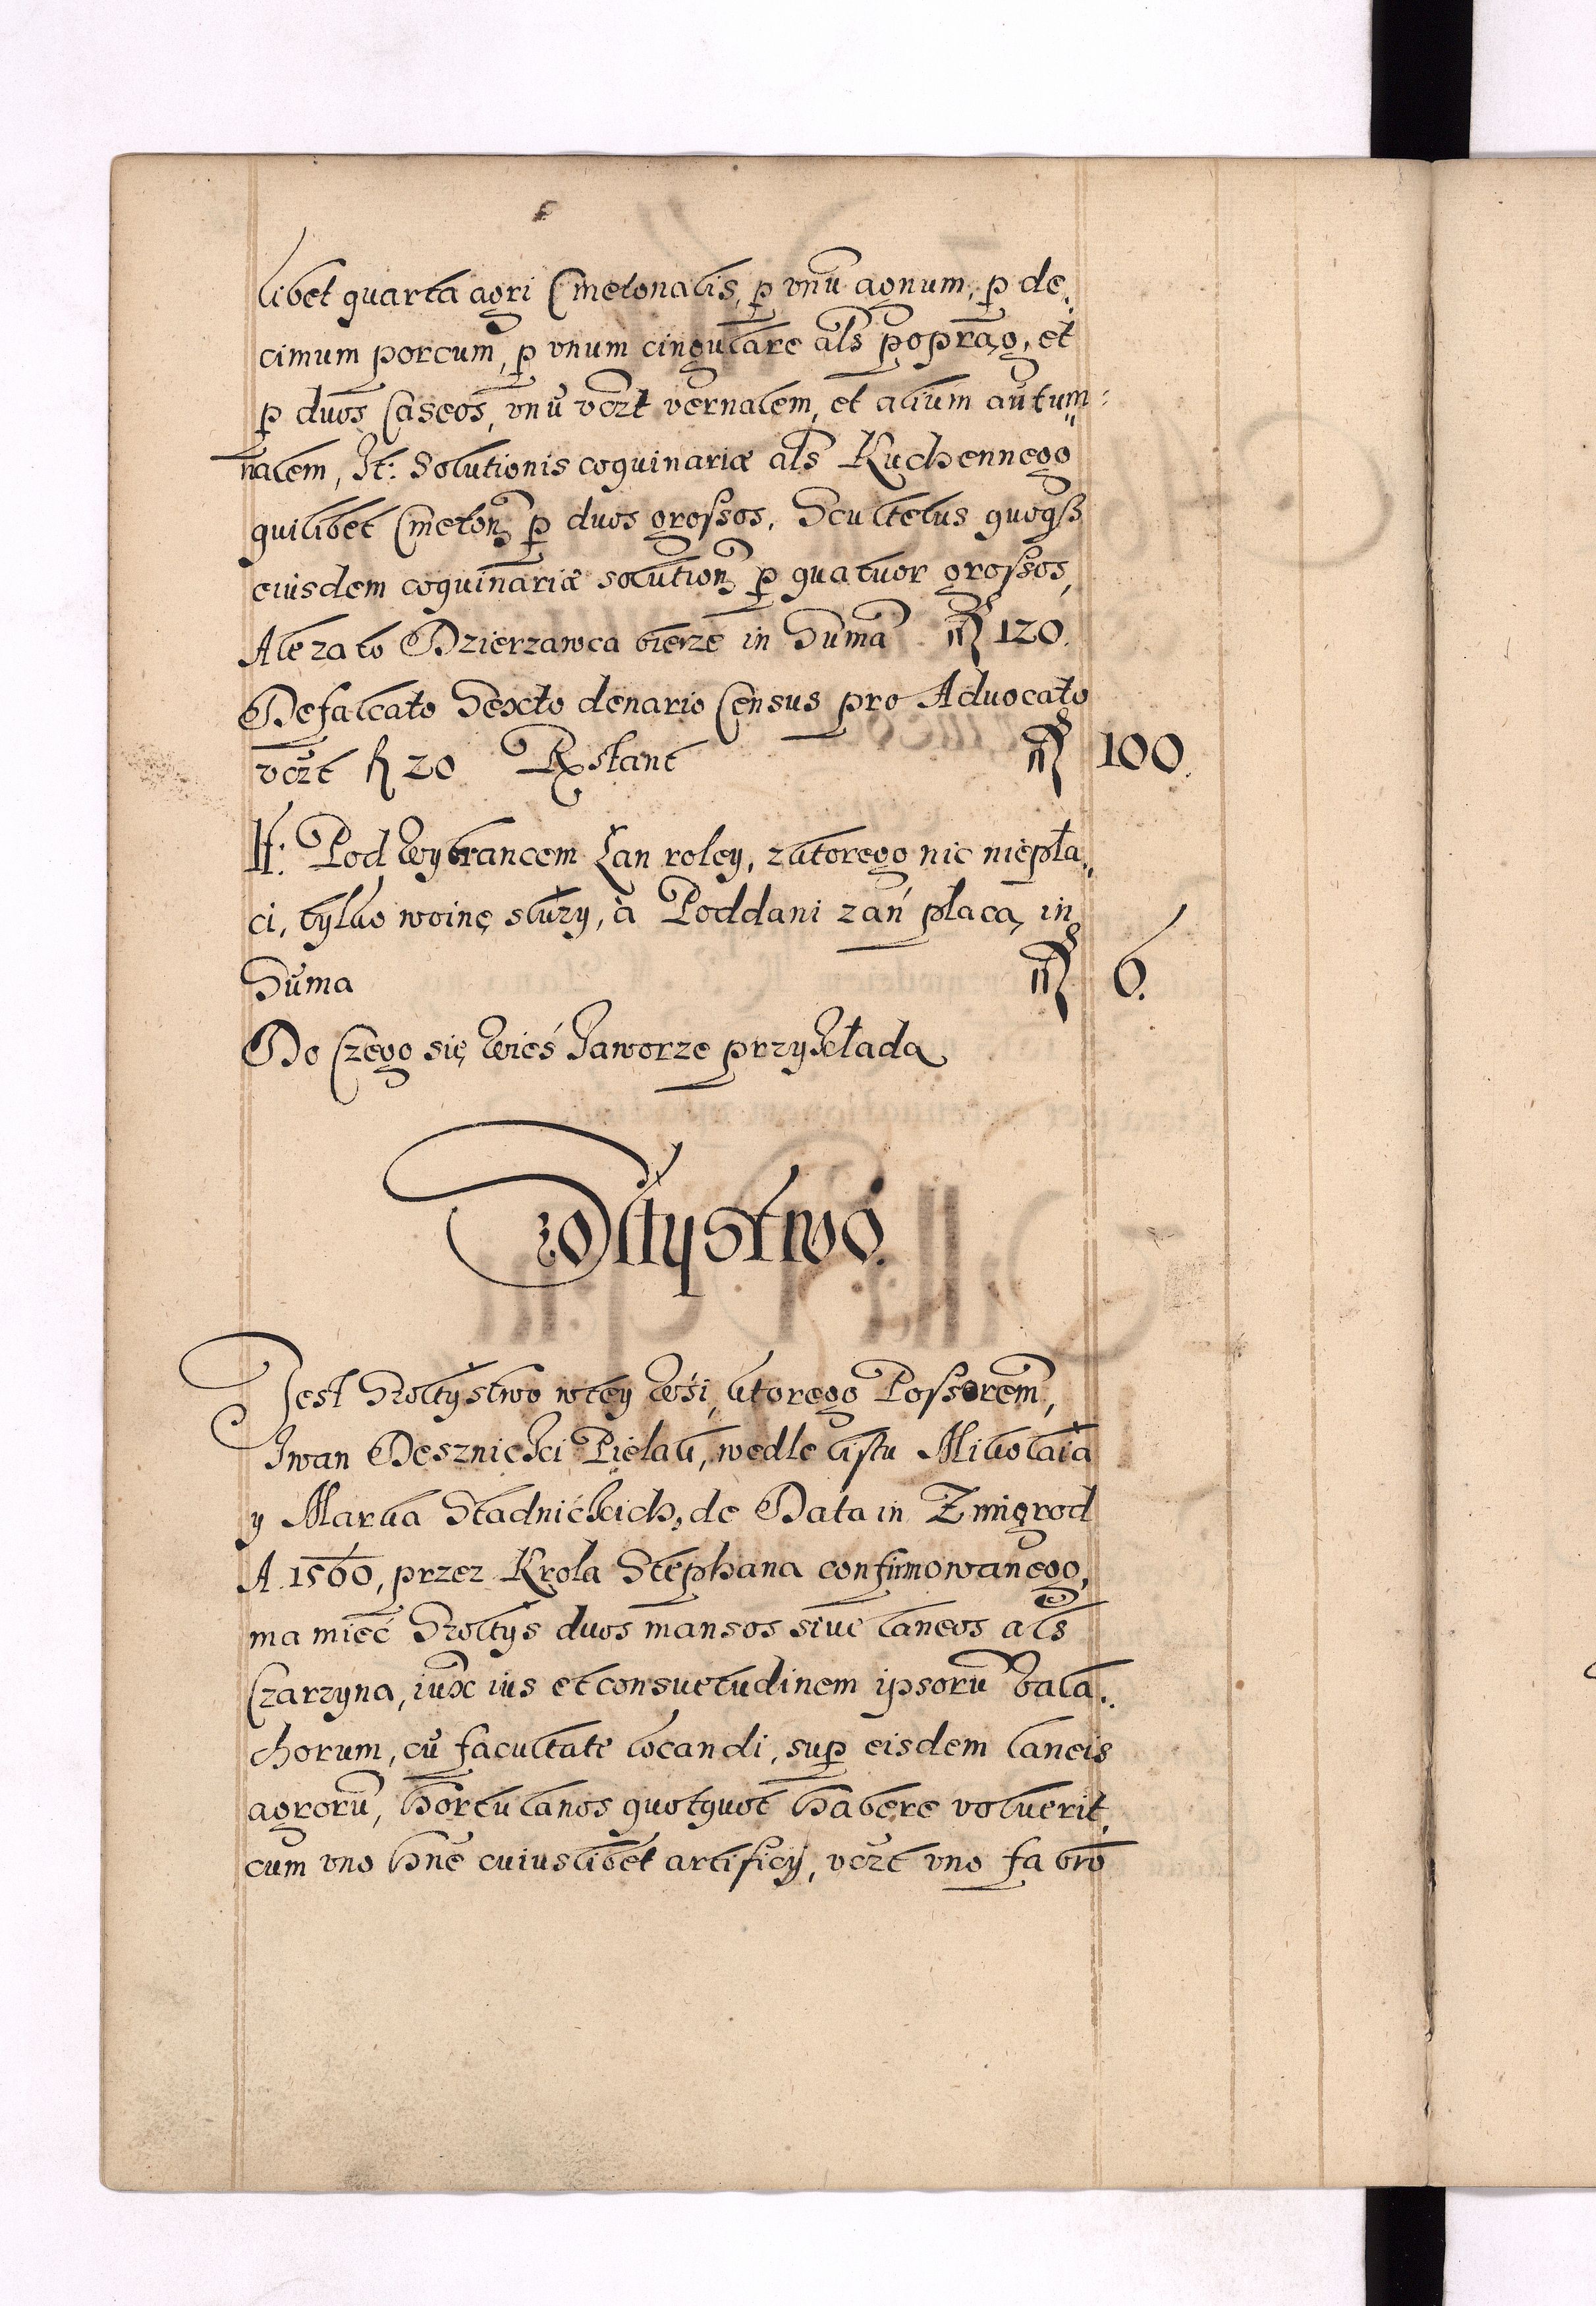 libet quarta agri Cmetonalis, p vnū agnum, p de,
cimum porcum, p vnum cingulare als poprąg, et
p duos Caseos, vnū vczt vernalem, et alium autum=
nalem, It: Solutionis coquinariæ als Kuchennego
quilibet Cmeton p duos grossos, Scultetus quoqß
eiusdem coquinariæ solution p quatuor grossos,
Ale za to Dzierzawca bierze in Suma fl 120.
Defalcato Sexto denario Census pro Advocato
vczt fl 20 Rstant fl 100.
It: Pod Wybrancem Łan roley, z ktorego nic niepła,,
ci, tylko woinę słuzy, à Poddani zań płacą in
Suma fl 6.
Do Czego się Wieś Jaworze przykłada
Szołtystwo.
Jest Szołtystwo wtey Wśi, ktorego Possorem,
Iwan Desznicki Pielak, wedle listu Mikołaia
y Marka Stadnickich, de Data in Zmigrod
A 1560, przez Krola Stephana confirmowanego,
ma mieć Szołtys duos mansos siue laneos als
Czarzyna, iux ius et consuetudinem ipsorū Vala,,
chorum, cū facultate locandi, sup eisdem laneis
agrorū, hortulanos quotquot habere voluerit,
cum vno hnē cuiuslibet artificÿ, vczt vno fabro